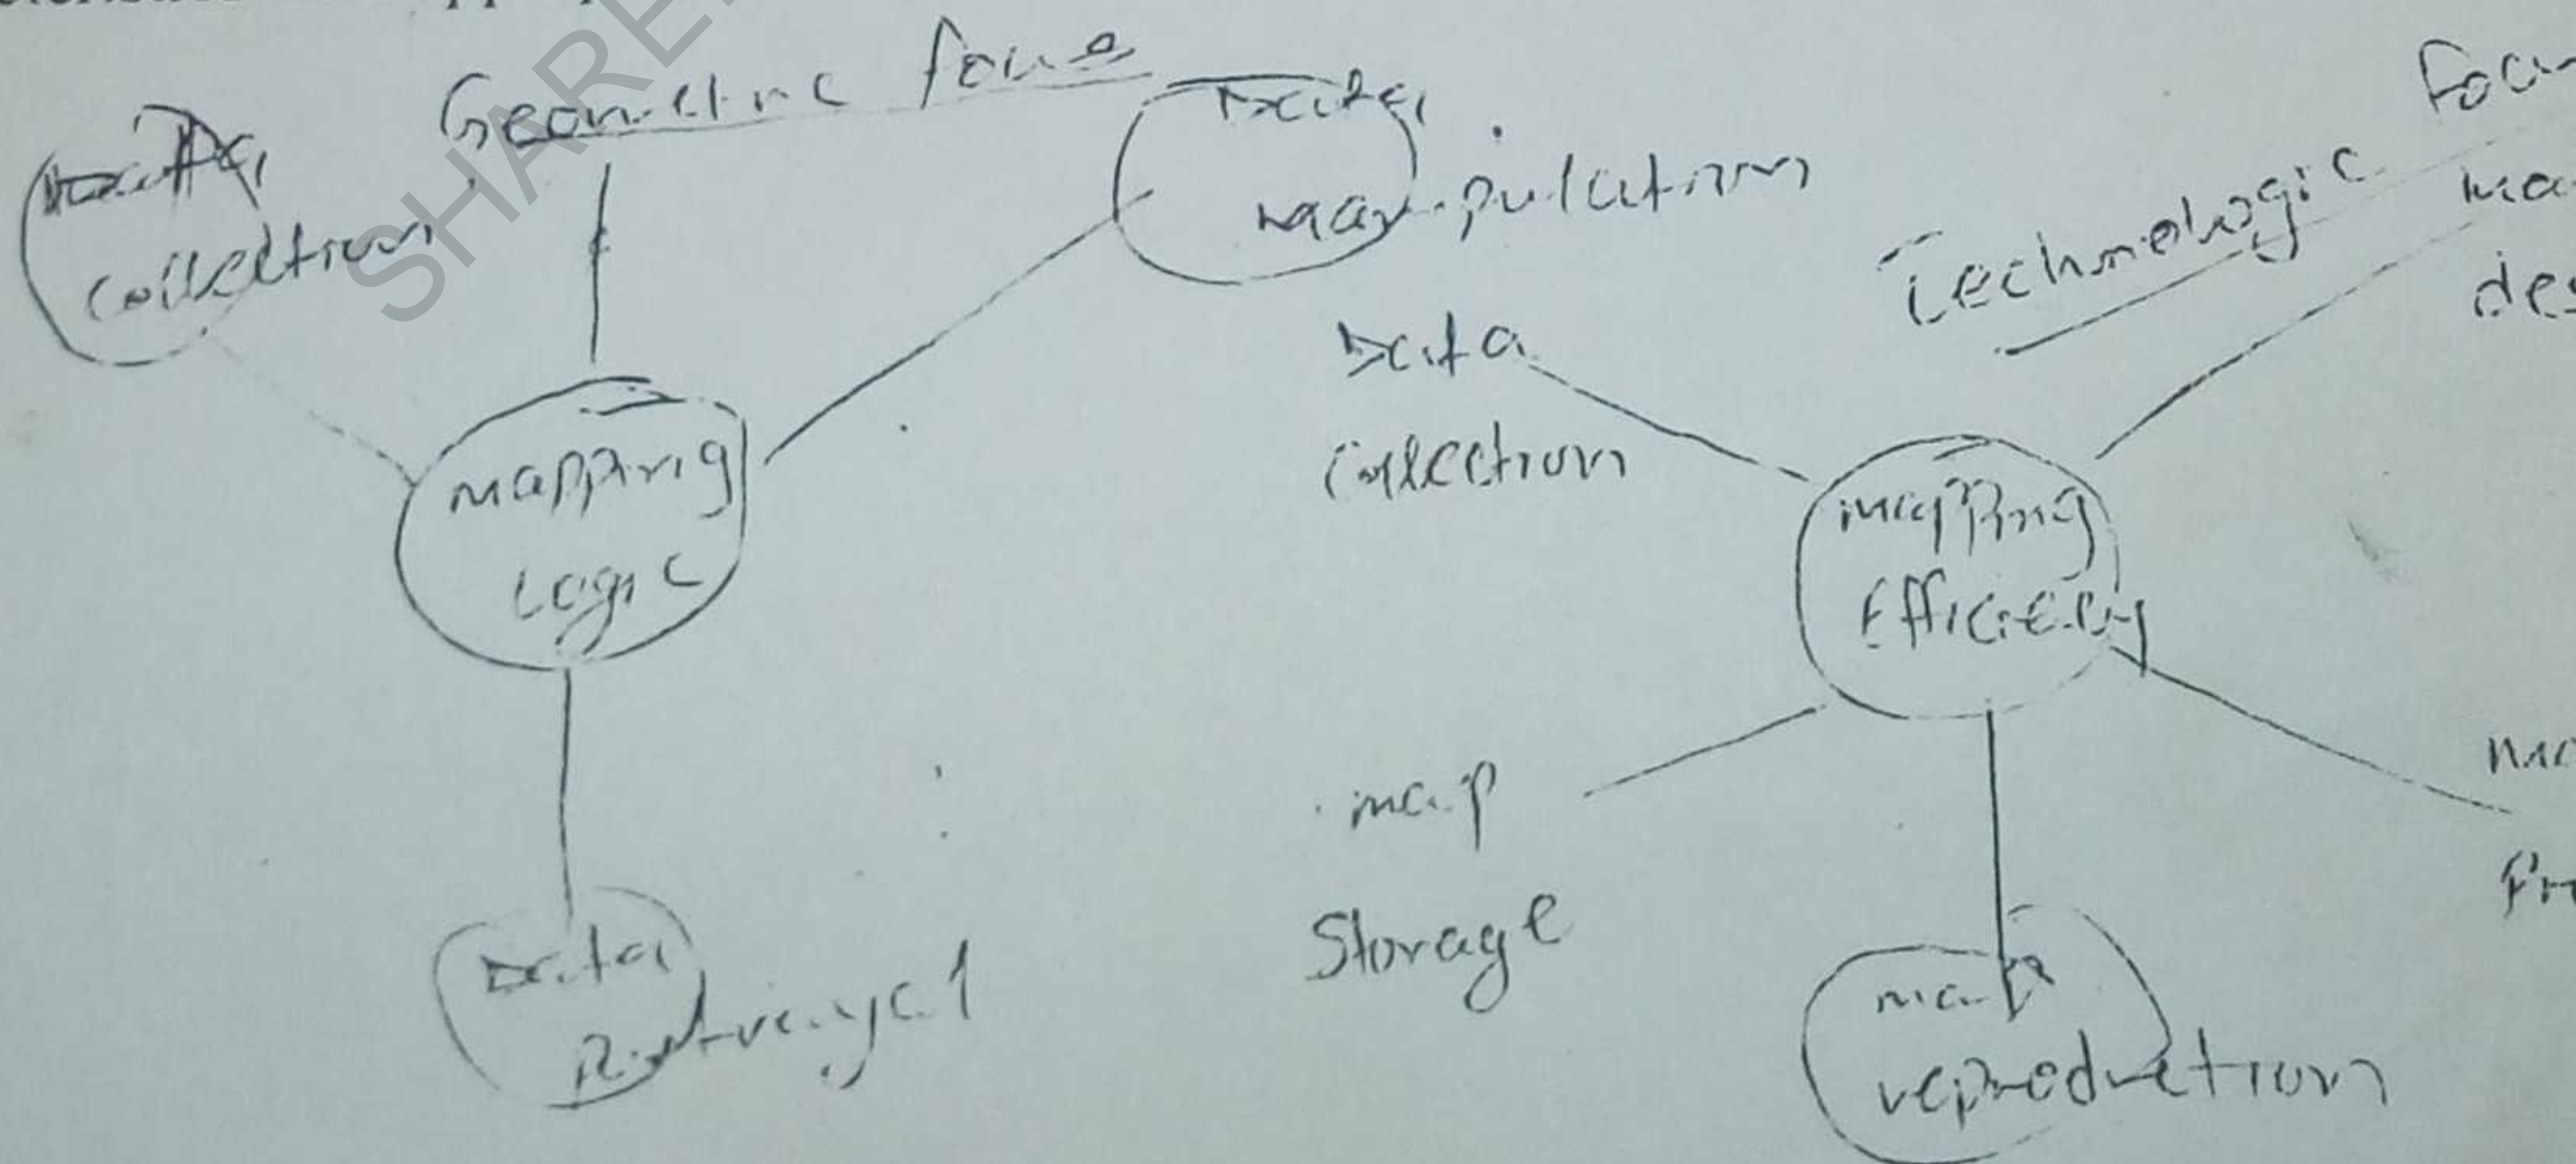 SHARE
Geometric focus
Data
collection
Data
manipulation
mapping
Logic
Data
Technologic
Data
Collection
mapping
Efficiency
map
Storage
map
reproduction